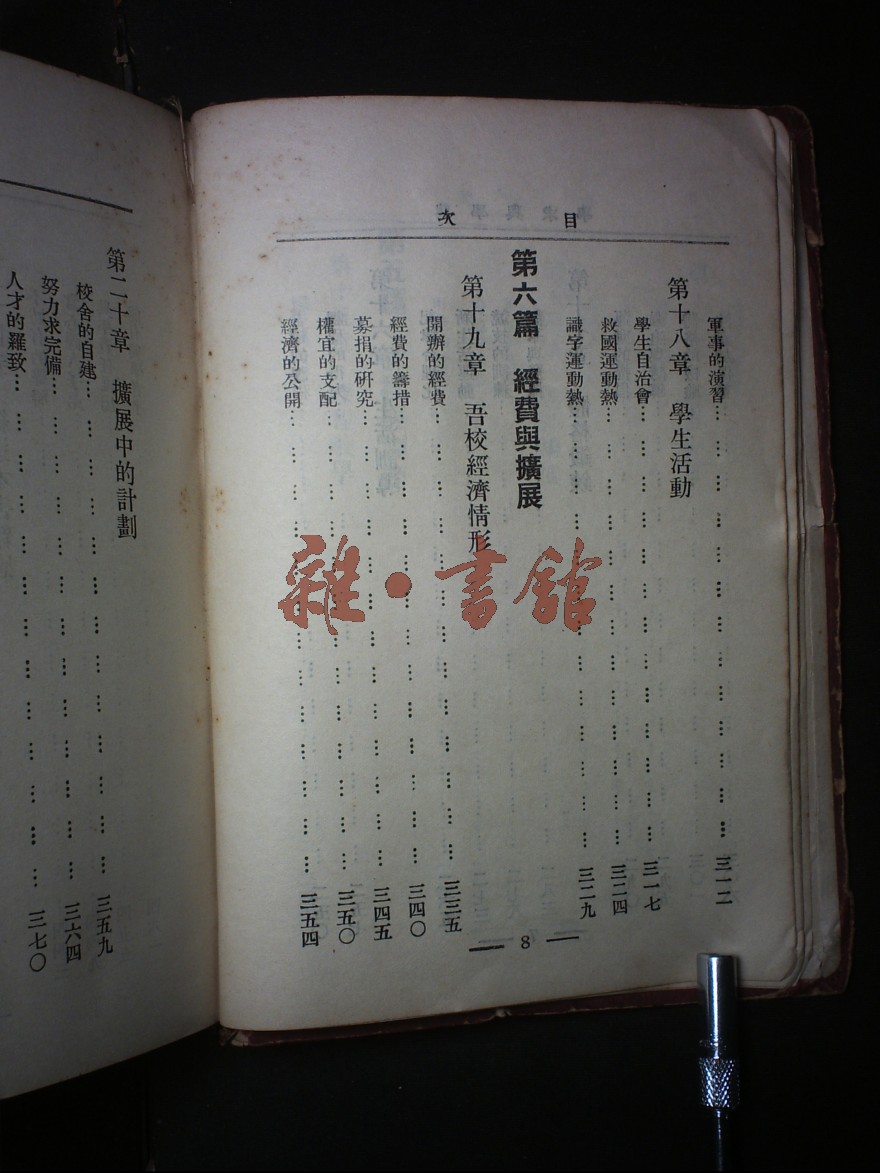 目次
軍事的演習…三一二
第十八章　學生活動
學生自治會…三一七
救國運動熱…三二四
識字運動熱…三二九
第六篇　經費與擴展
第十九章　吾校經濟情形
開辦的經費…三三五
經費的籌措…三四〇
募捐的研究…三四五
權宜的支配…三五〇
經濟的公開…三五四
8
第二十章　擴展中的計劃
校舍的自建…三五九
努力求完備…三六四
人才的羅致…三七〇
雜·書館